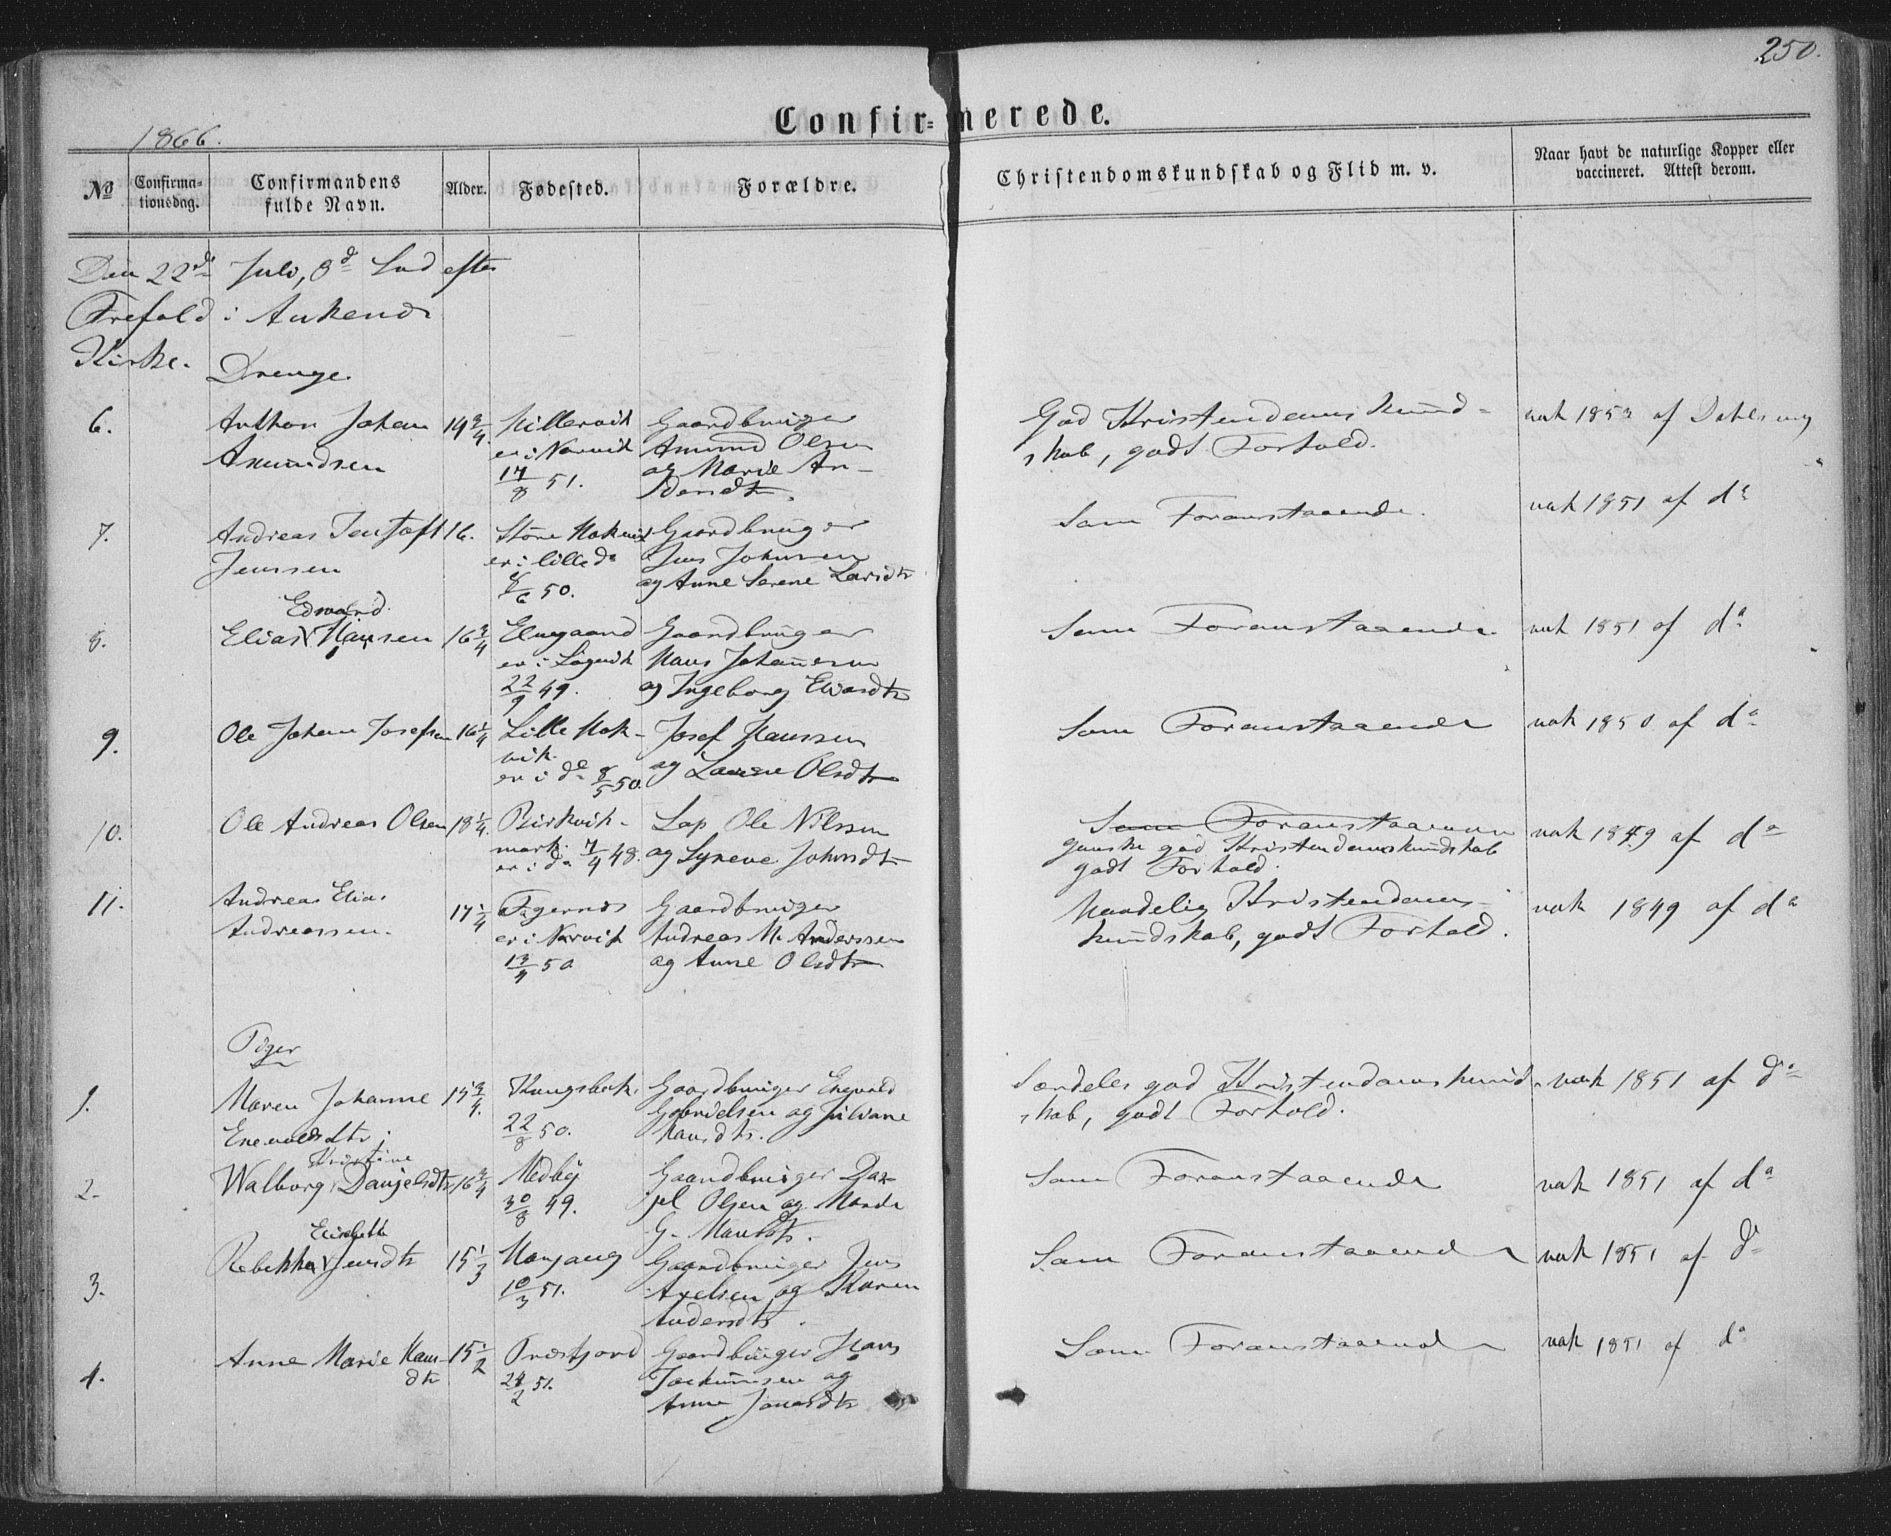 250.
Confir=merede.
1866.
No Confirmationsdag. Confirmandens fulde Navn. Alder. Fødested. Forældre. Christendomskundskab og Flid m. v. Naar havt de naturlige Kopper eller vaccineret. Attest derom.
Den 22de Juli, 8d Snd efter
Trefold i Ankenes
Kirke.
Drenge
6. Anthon Johan 14 3/4 Gaardbruger God Kristendoms kund- vak 1853 af
Amundsen er i Narvik Amund Olsen skab, godt Forhold.
17/8 51. og Marie An-
dersdtr.
7. Andreas 16. Store Gaardbruger Som Foranstaaende. vak 1851 af do
Jenssen er i lille do Jens Johnsen
/6 50. og Anne Serene Larsdtr
Edvard
8. Elias Hansen 16 3/4 Elvegaard Gaardbruger Som Foranstaaende vak 1851 af do
er i Hans Johannesen
22/9 49. og Ingeborg Elvardtr
9. Ole Johan Josefsen 16 1/4 Lille Josef Hanssen Som Foranstaaende vak 1850 af do
vik
er i do 8/5 50. og Olsdtr
10. Ole Andreas Olsen 18 1/4. Beisvik- Lap Ole Nilssen Som Foranstaaende vak 1849 af do
mark. ganske god Kristendomskundskab
er i do 7/4 48. og Johnsdtr godt Forhold.
11. Andreas Elias 17 1/4 Fagernes Gaardbruger Maadelig Kristendoms- vak 1849 af do
Andreassen. er i Narvik Andreas M. Anderssen kundskab, godt Forhold.
13/4 50 og Anne Olsdtr
Piger
1. Maren Johanne 15 3/4. Kongsbak. Gaardbruger Enevold Særdeles god Kristendomskund- vak 1851 af do
Enevoldsdtr. 22/8 50. Gabrielsen og Juliane skab, godt Forhold.
Hansdtr.
Kristine
2. Walborg Danjelsdtr 16 3/4 Medby Gaardbruger Dan- Som Foranstaaende vak 1851 af do
30/8 49. jel Olsen og
G. Hansdtr.
Elisabeth
3. Rebekka Jensdtr 15 1/3 Gaardbruger Jens Som Foranstaaende vak 1851 af do
10/3 51. Axelsen og Karen
Andersdtr.
4. Anne Marie Hans- 15 1/2 Gaardbruger Hans Som Foranstaaende vak 1851 af do
dtr 24/2 51. Joakimsen og
Anne Jonasdtr